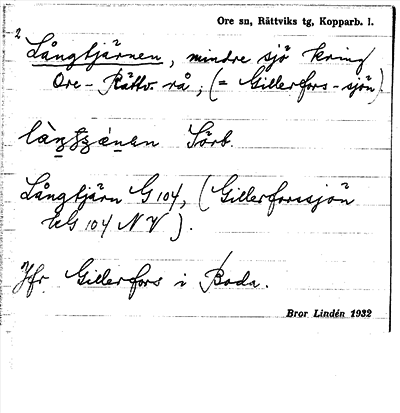 Ore sn, Rättviks tg, Kopparb. l.
2
Långtjärnen, mindre sjö kring
Ore-Rättv. rå; (= Gillerfors-sjön)
Sörb.
Långtjärn G 104, (Gillerforssjön
104 NV).
Jfr Gillerfors i Boda.
Bror Lindén 1932